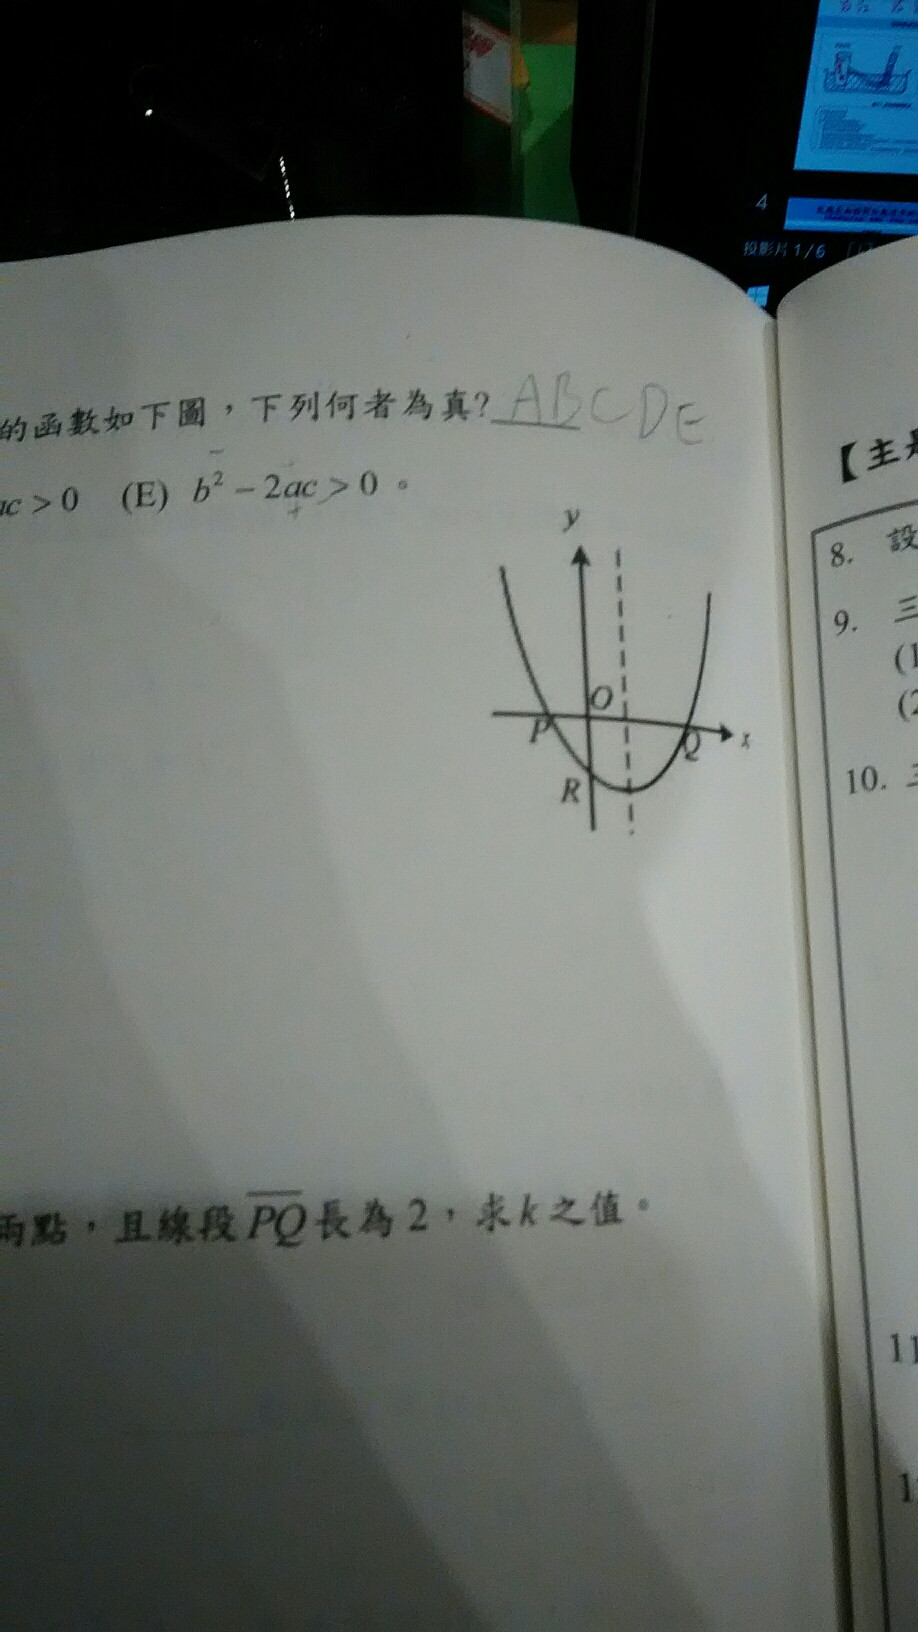 4
投影片 1/6
的函數如下圖，下列何者為真? ABCDE
ac > 0 (E) b² − 2ac > 0 。
y
O
P
Q
x
R
兩點，且線段 PQ 長為 2，求 k 之值。
【主
8. 設
9. 三
(1
(2
10. 三
11